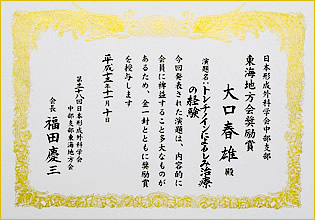 日本形成外科学会中部支部
東海地方会奨励賞
大口春雄殿
演題名:トレチノインによるしみ治療
の経験
今回発表された演題は、内容的に
会員に裨益すること多大なものが
あるため、金一封とともに奨励賞
を授与します
平成十三年十一月十日
第三十八回日本形成外科学会
中部支部東海地方会
会長 福田慶三